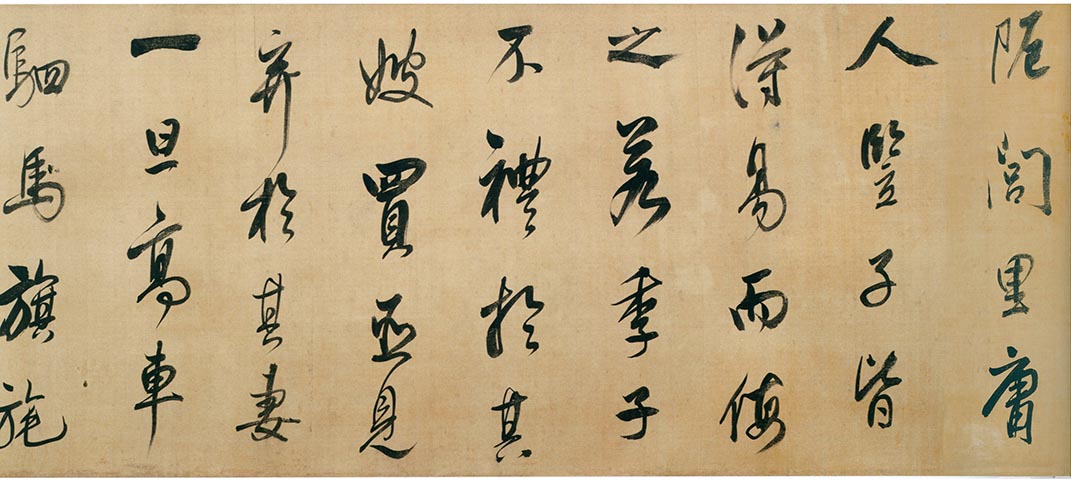 阨閭里庸
人豎子皆
得易而侮
之若季子
不禮於其
嫂買臣見
弃於其妻
一旦高車
駟馬旗旄